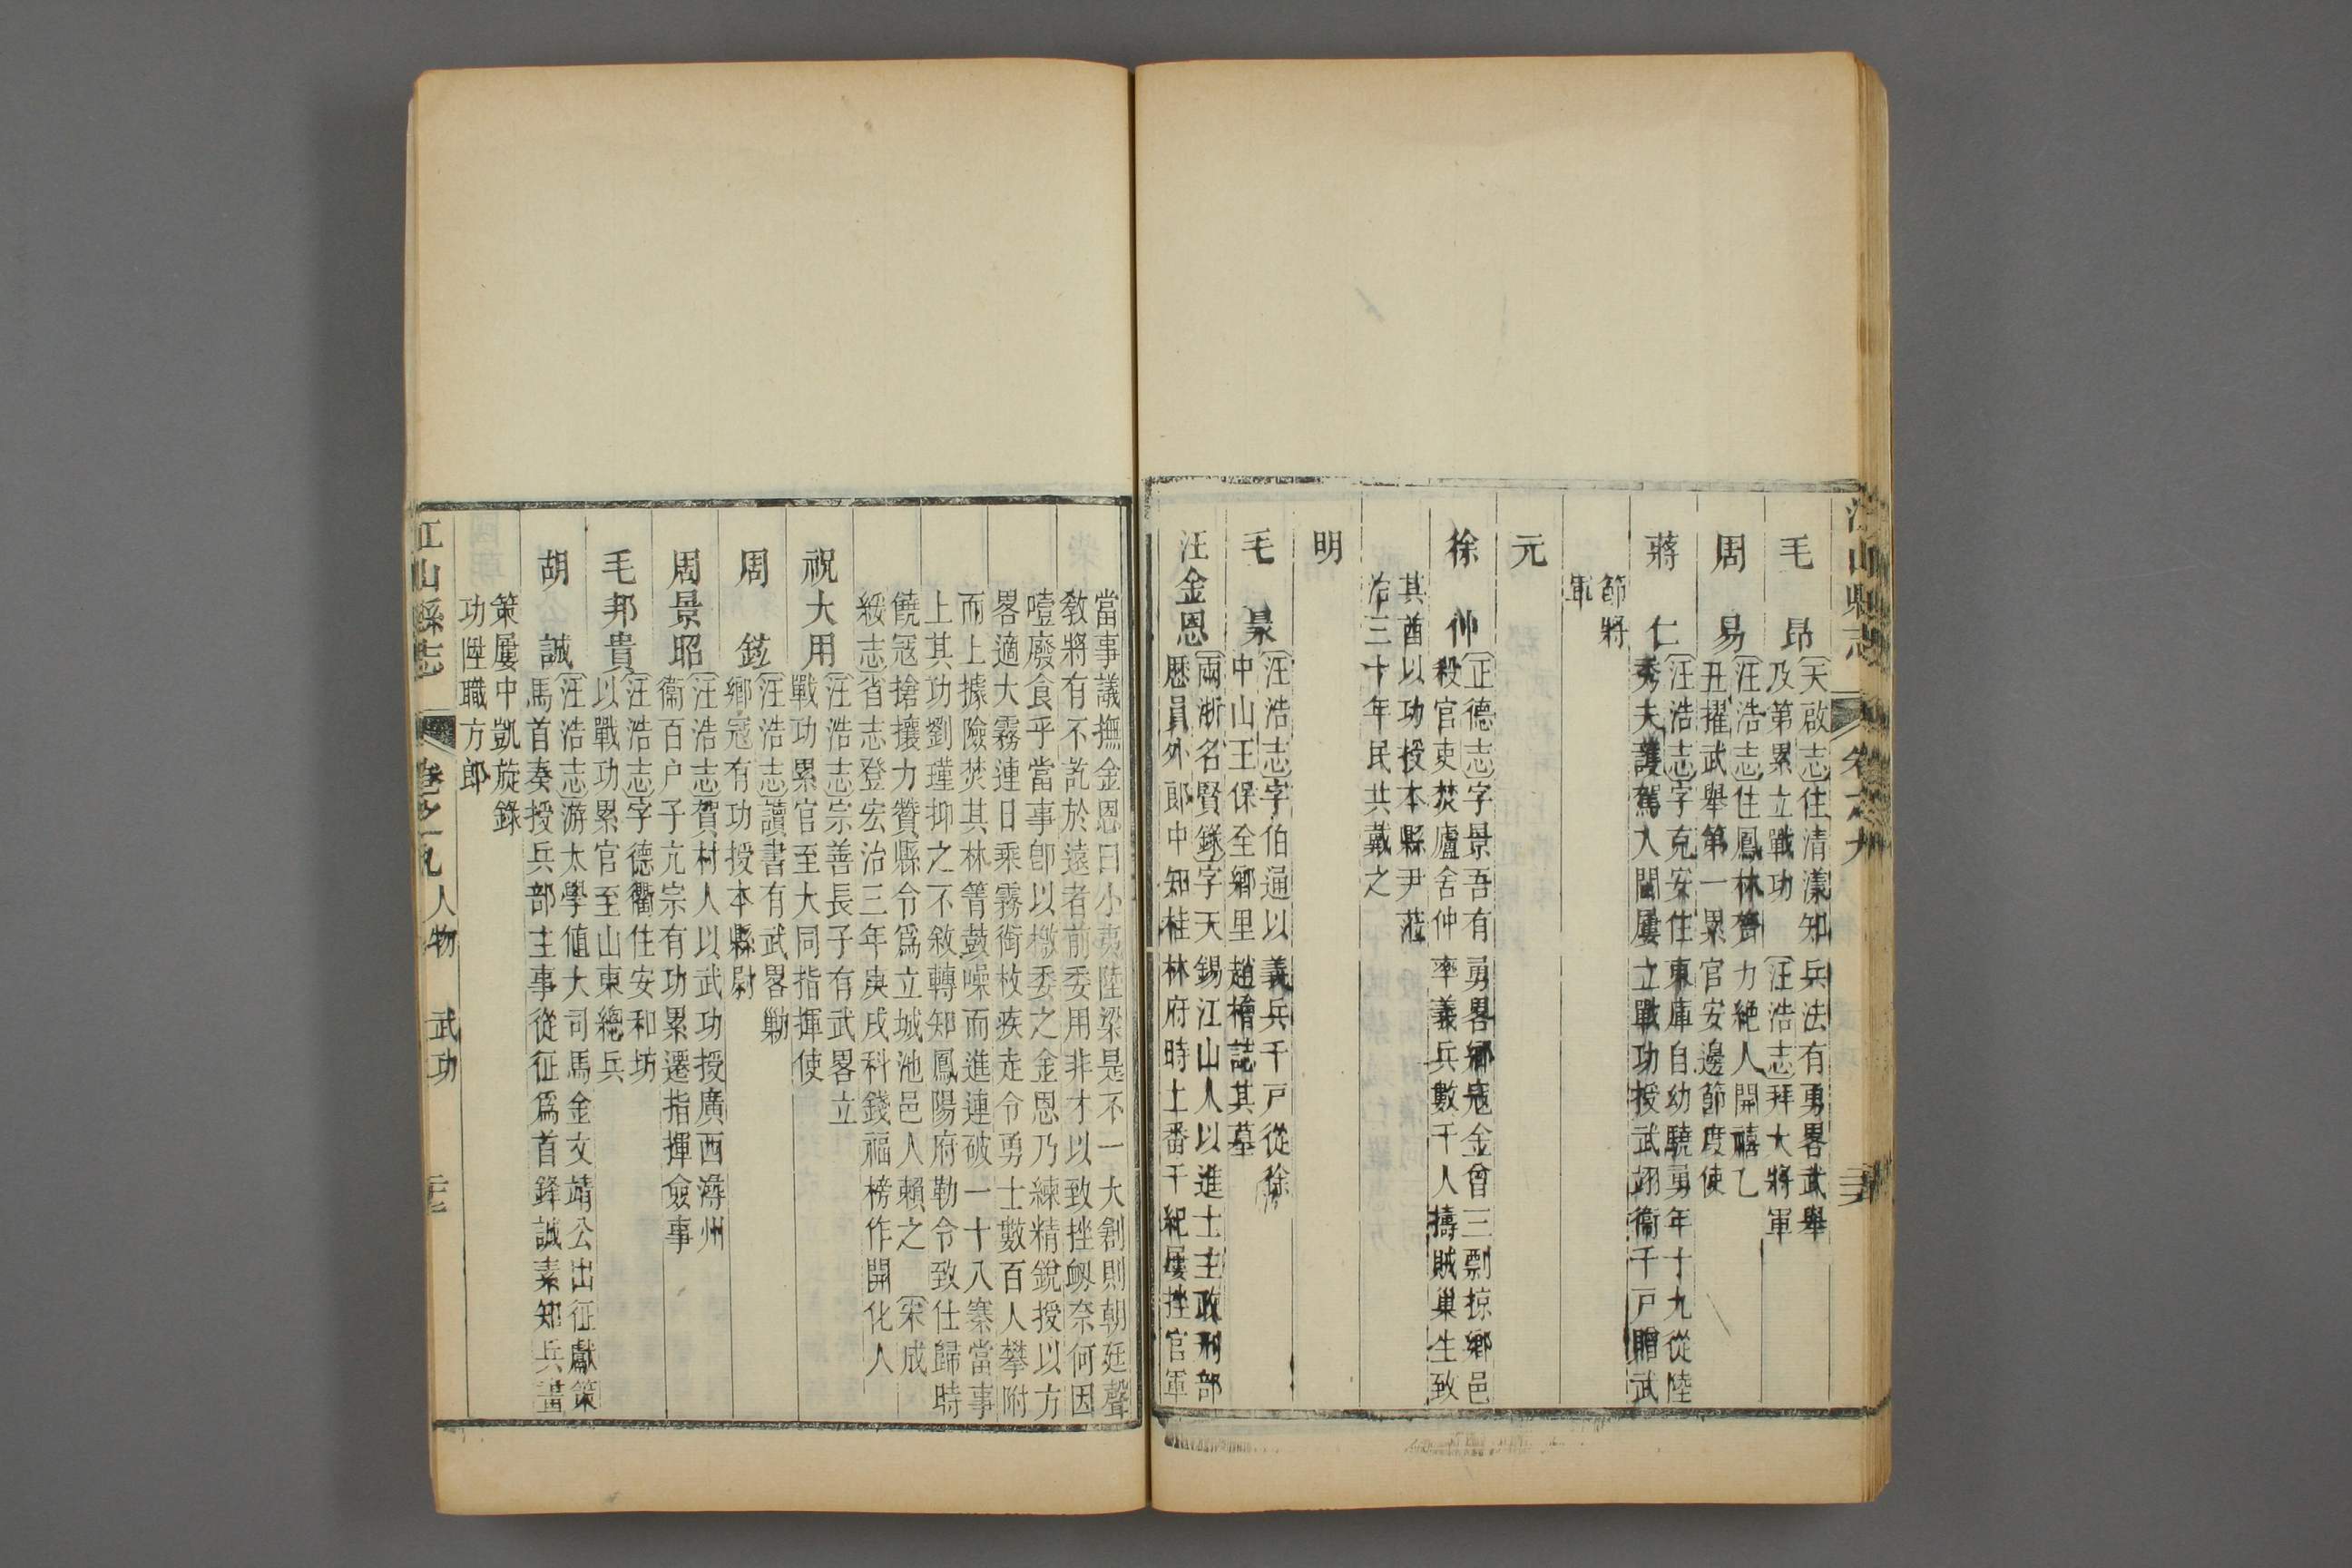 江山縣志
毛昂
天啟志住清漾知兵法有勇畧武舉
及第累立戰功
汪浩志拜大將軍
周易
汪浩志住鳳林膂力絶人開禧乙
丑擢武舉第一累官安邊節度使
蔣仁
汪浩志字克安住東庫自幼驍勇年十九從陸
秀夫護駕入閩屢立戰功授武翊衞千戸贈武
節將
軍
元
徐仲
正德志字景吾有勇畧鄉寇金曾三剽掠鄉邑
殺官吏焚廬舍仲率義兵數千人擣賊巢生致
其酋以功授本縣尹蒞
治三十年民共戴之
明
毛昗
汪浩志字伯通以義兵千戸從徐
中山王保至鄉里趙檜誌其墓
汪金恩
兩淅名賢錄字天錫江山人以進士主政刑部
歴員外郎中知桂林府時土番千紀屢挫官軍
當事議撫金恩曰小夷陸梁是不一大創則朝廷聲
教將有不訖於遠者前委用非才以致挫衂奈何因
噎廢食乎當事卽以檄委之金恩乃練精銳授以方
畧適大霧連日乘霧銜枚疾走令勇士數百人攀附
而上據險焚其林箐鼓噪而進連破一十八寨當事
上其功劉瑾抑之不敘轉知鳳陽府勒令致仕歸時
饒寇搶攘力贊縣令爲立城池邑人賴之
宋成
綏志省志登宏治三年庚戌科錢福榜作開化人
祝大用
汪浩志宗善長子有武畧立
戰功累官至大同指揮使
周鉉
汪浩志讀書有武畧勦
鄉寇有功授本縣尉
周景昭
汪浩志賀村人以武功授廣西潯州
衞百户子亢宗有功累遷指揮僉事
毛邦貴
汪浩志字德衢住安和坊
以戰功累官至山東總兵
胡誠
汪浩志游太學値大司馬金文靖公出征獻策
馬首奏授兵部主事從征爲首鋒誠素知兵畫
策屢中凱旋錄
功陞職方郎
江山縣志
卷之九
人物
武功